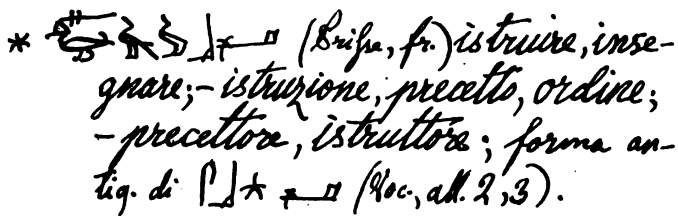 * (Prisse, fr.) istruire, inse-
gnare; – istruzione, precetto, ordine;
– precettore, istruttore; forma an-
tiq. di 𓋴𓃀𓇼𓂝 (Voc., all. 2, 3).